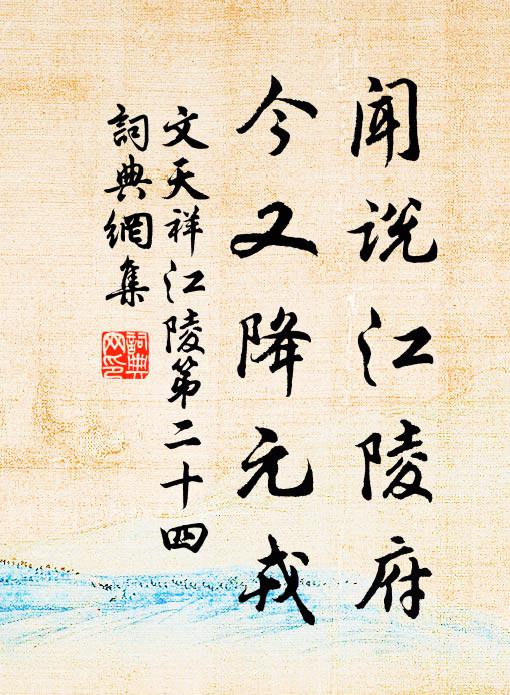 闻说江陵府
今又降元戎
文天祥江陵第二十四
詞典網集
詞典
网印